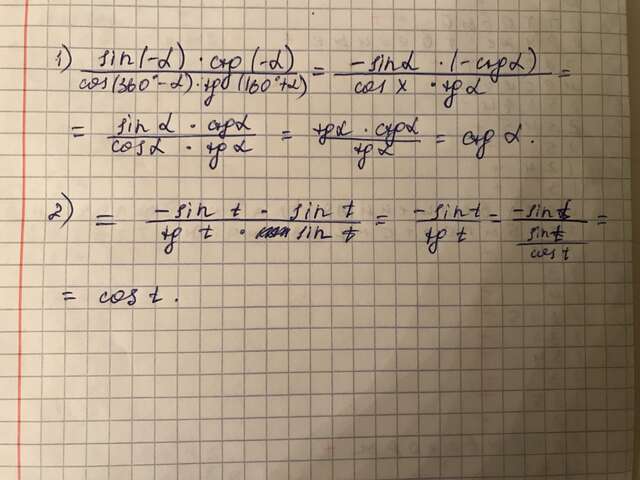 1) sin(-α) · ctg(-α) / cos(360° - α) · tg(180° + α) = -sinα · (-ctgα) / cos x · tgα =
= sinα · ctgα / cosα · tgα = tgα · ctgα / tgα = ctgα.
2) = -sin t · sin t / tg t · sin t = -sin t / tg t = -sin t / sin t / cos t =
= cos t.